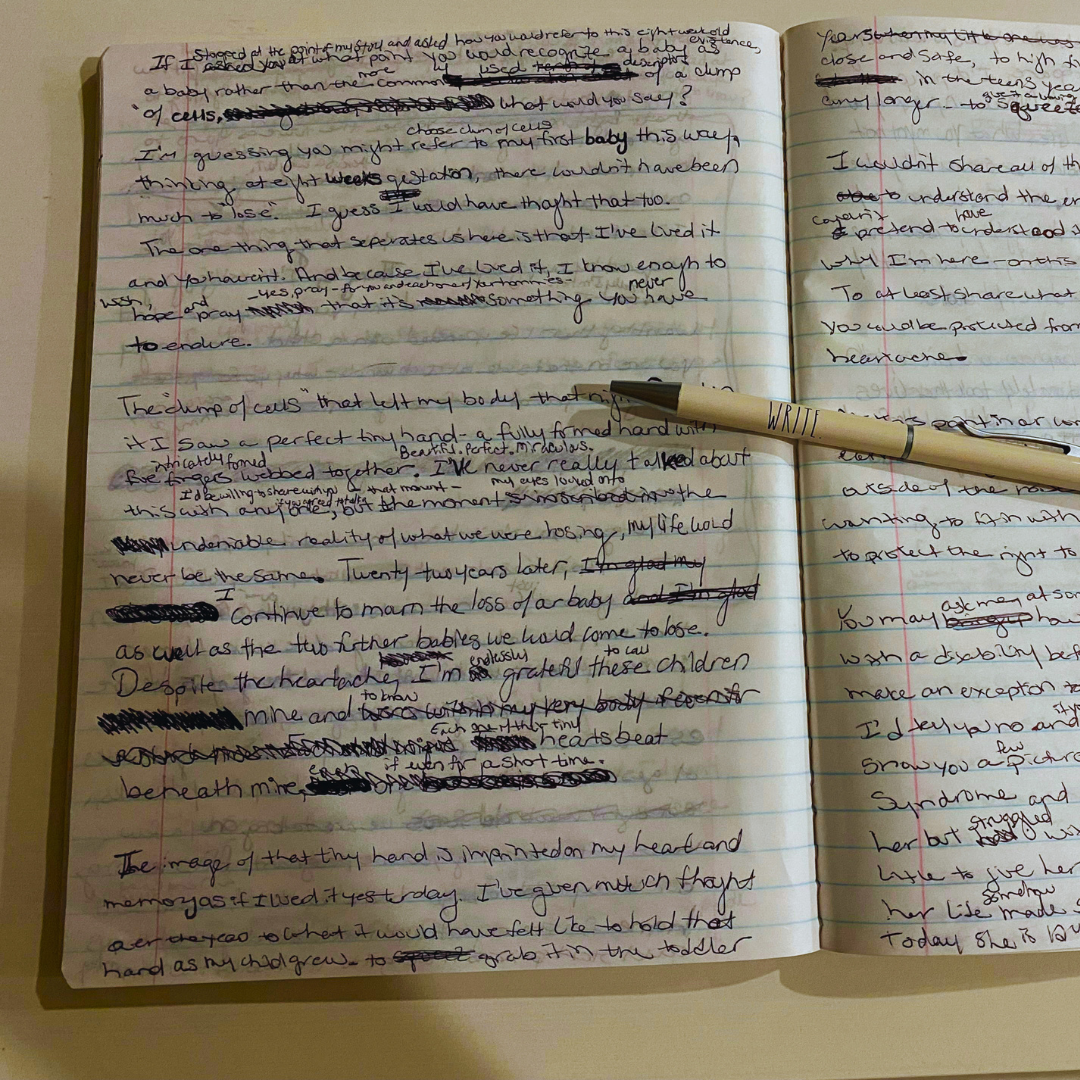 stopped at the point of my story and asked how you would refer to this eight week old existence,
If I asked you at what point you would recognize a baby as
a baby rather than the more commonly used descriptor of a clump
of cells, what would you say?
choose clum of cells
I'm guessing you might refer to my first baby this way,
thinking at eight weeks gestation, there wouldn't have been
much to "lose". I guess I would have thaght that too.
The one thing that seperates us here is that I've lived it
and you haven't. And because I've lived it, I know enogh to
wish, hope and pray - yes, pray - for you and - that it's something you never have
to endure.
The "clump of cells" that left my body that
it I saw a perfect tiny hand - a fully formed hand with
intricately formed Beautiful. Perfect. Miraculous.
five fingers webbed together. I've never really talked about
I'd be willing to share - that moment - my eyes locked onto
this with anyone, but the moment the
undeniable reality of what we were losing, my life would
never be the same. Twenty two years later, I'm glad my
I continue to marn the loss of our baby and I'm glad
as well as the two further babies we would come to lose.
Despite the heartache, I'm endlessly grateful to call these children
mine and to know
Each one of their tiny hearts beat
beneath mine, even if even for a short time.
The image of that tiny hand is imprinted on my heart and
memory as if I lived it yesterday. I've given much thaght
over the years to what it would have felt like to hold that
hand as my child grew - to grab it in the toddler
years when my little one was
close and safe, to high fi
in the teens yea
any longer - to squeeze
I wouldn't share all of th
to understand the en
pretend to have understood
why I'm here - on this
To at least share what
you could be protected from
heartache.
point in our
outside of the
wanting to fit in with
to protect the right to
You may ask me at som
with a disability bef
make an exception to
I'd tell you no and
show you a few pictur
Syndrome and
her but struggled wi
little to give her
her life somehow made s
Today she is
WRITE.